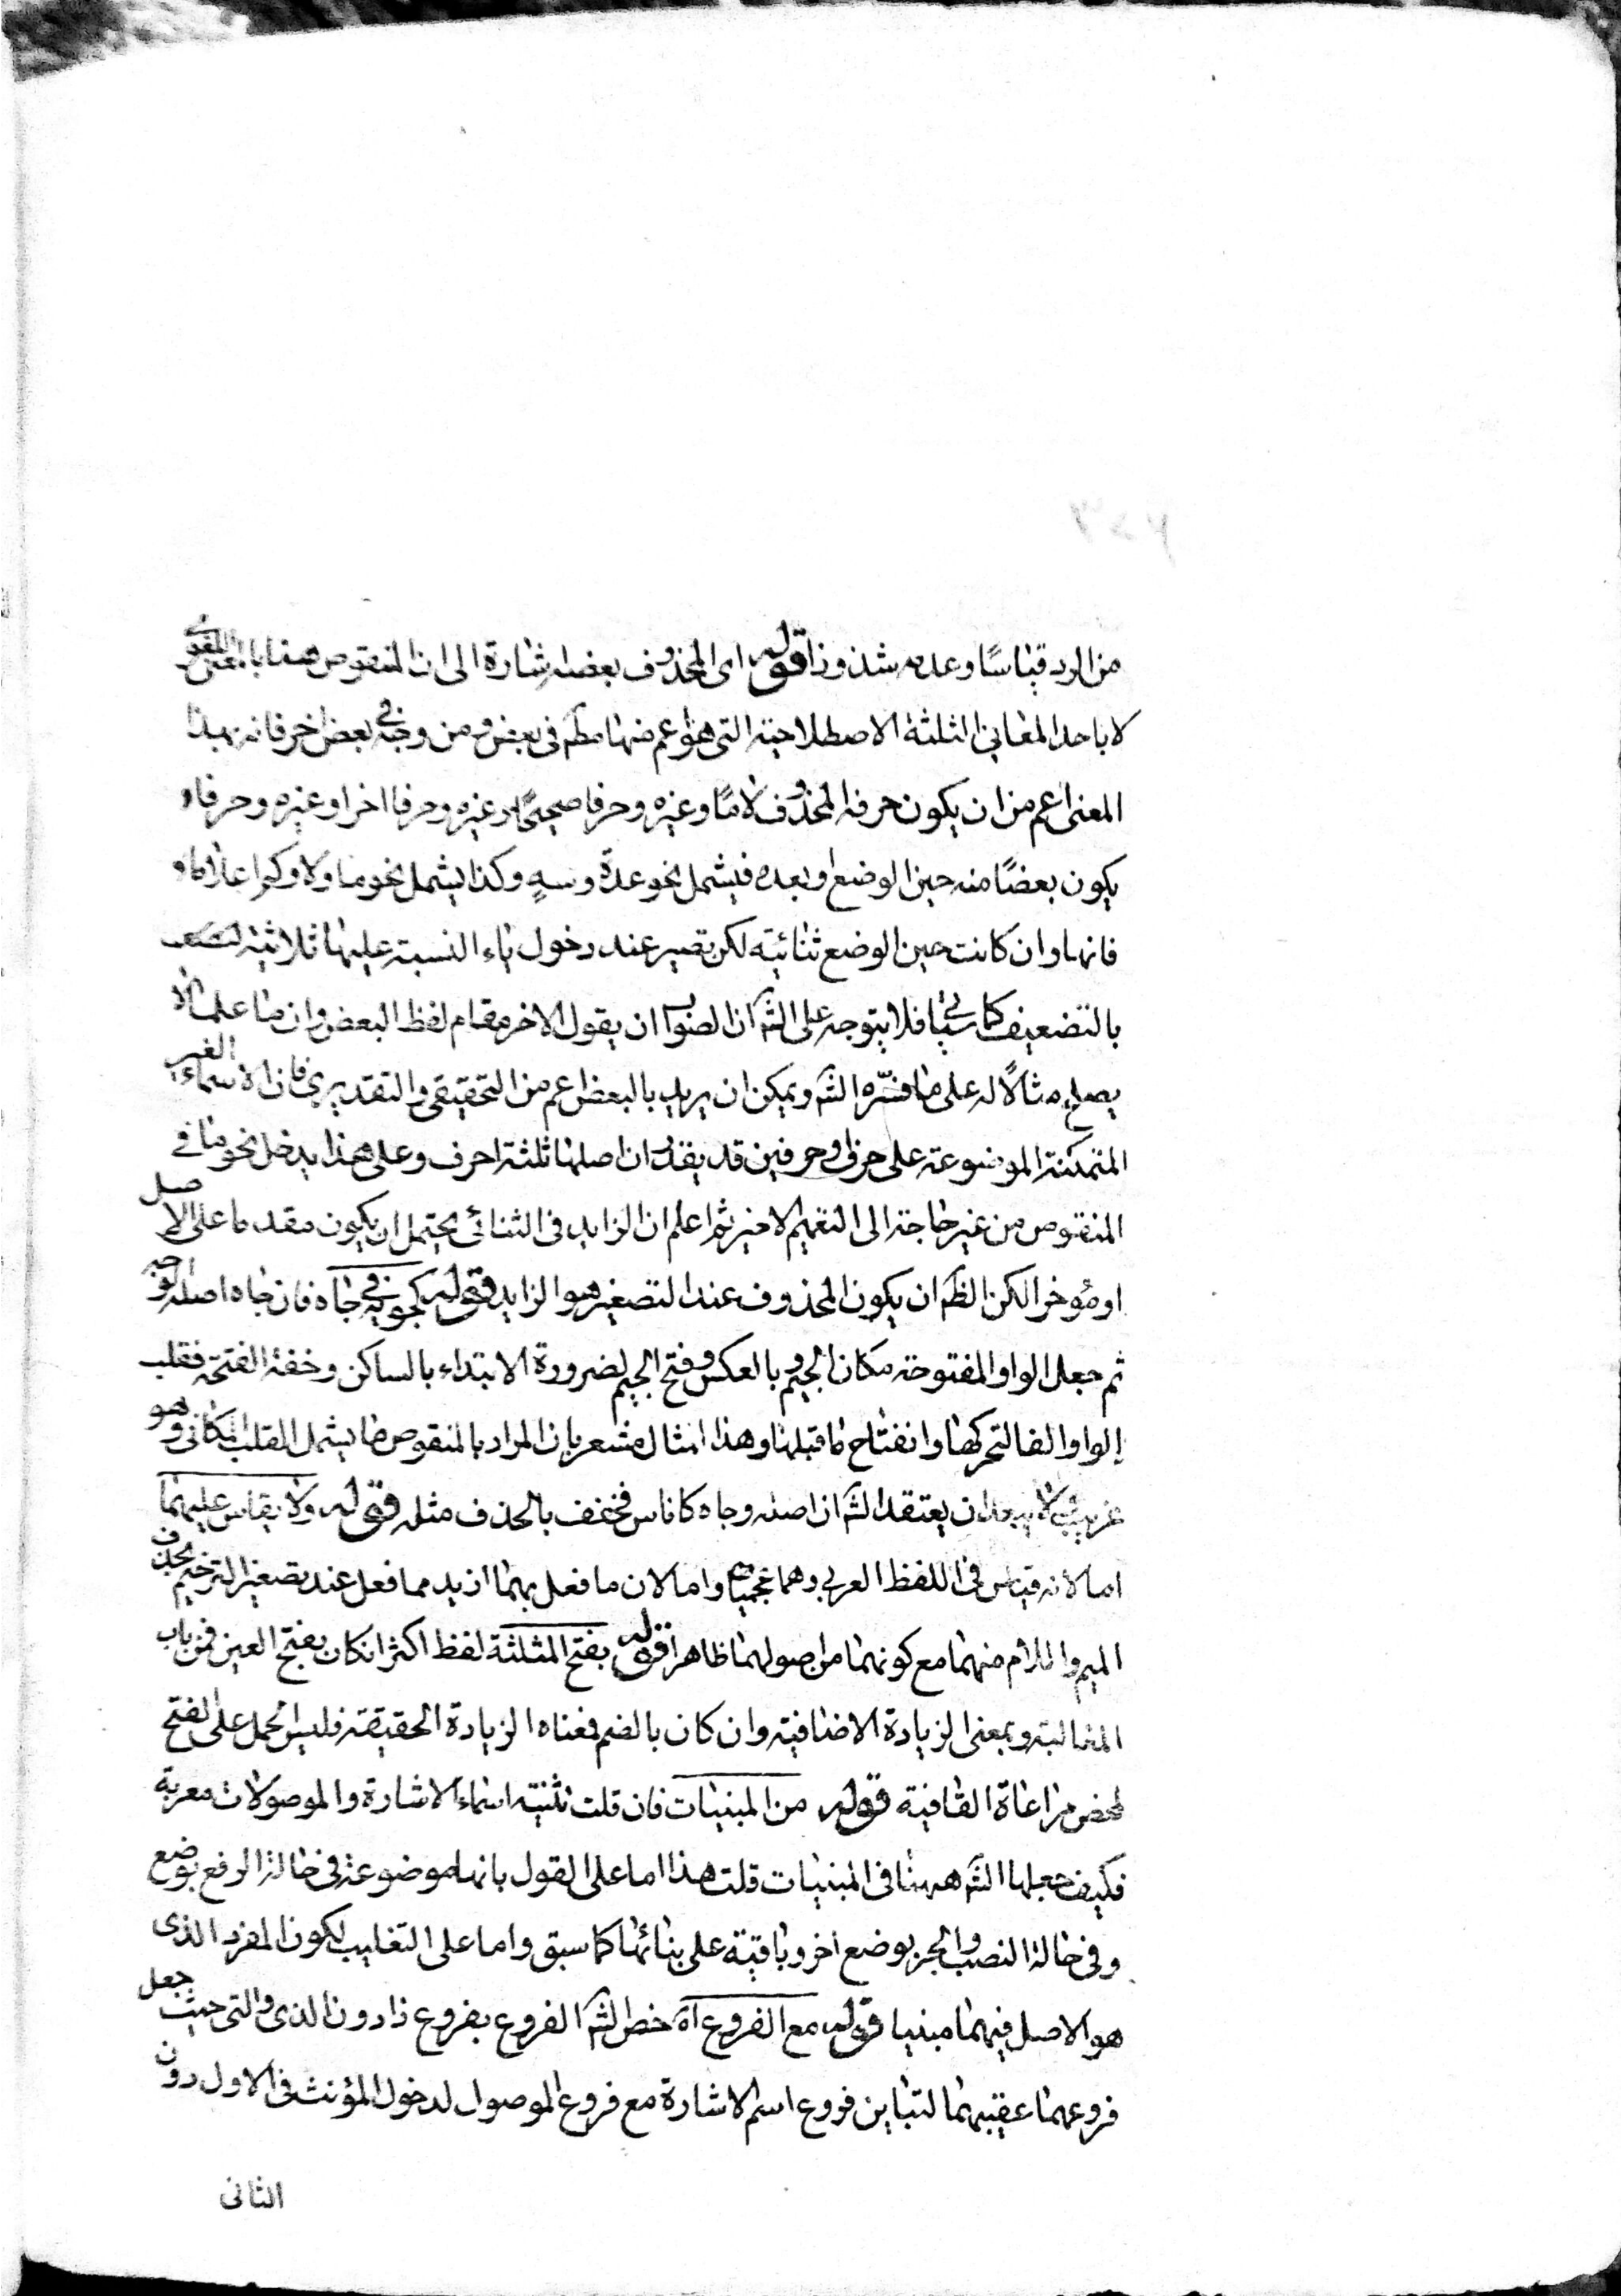 من الرد قياسًا وعدمه شذوذا قوله اى المحذوف بعضه اشارة الى ان المنقوص هنا بالمعنى اللغوى
لا باحد المعانى الثلثة الاصطلاحية التى هو اعم منها مطلقا فى بعض ومن وجه فى بعض اخر فانه بهذا
المعنى اعم من ان يكون حرفه المحذوف لامًا وغيره وحرفا صحيحًا وغيره وحرفا اخر او غيره وحرفا
يكون بعضًا منه حين الوضع او بعده فيشمل نحو عدة وسهٍ وكذا يشمل نحو ما ولا وكى اعلاما
فانها وان كانت حين الوضع ثنائية لكن تصير عند دخول ياء النسبة عليها ثلاثية
بالتضعيف كما سيأتى فلا يتوجه على الشه ان الصواب ان يقول الاخر مقام لفظ البعض وان ما علما لا
يصلح مثالًا له على ما فسّره الشه ويمكن ان يريد بالبعض اعم من التحقيقى والتقديرى فان الاسماء الغير
المتمكنة الموضوعة على حرف او حرفين قد يقدر ان اصلها ثلثة احرف وعلى هذا يدخل نحو ما فى
المنقوص من غير حاجة الى التعميم الاخير ثم اعلم ان الزايد فى الثنائى يحتمل ان يكون مقدما على الاصل
او مؤخرا لكن الظه ان يكون المحذوف عند التصغير هو الزايد قوله كجويه فى جاه فان جاه اصله وجه
ثم جعل الواو المفتوحة مكان الجيم وبالعكس وفتح الجيم لضرورة الابتداء بالساكن وخفة الفتحة فقلب
الواو الفا لتحركها وانفتاح ما قبلها وهذا المثال مشعر بان المراد بالمنقوص ما يشمل القلب المكانى وهو
غريب لا يبعد ان يعتقد الشه ان اصله وجاه كاناس فخفف بالحذف مثله قوله ولا يقاس عليهما
اما لانه قياس فى اللفظ العربى وهما عجميان واما لان ما فعل بهما ازيد مما فعل عند تصغير الترخيم بحذف
الميم واللام منهما مع كونهما من اصولهما ظاهرا قوله بفتح المثلثة لفظ اكثر ان كان بفتح العين فمن باب
المغالبة وبمعنى الزيادة الاضافية وان كان بالضم فمعناه الزيادة الحقيقة فليس الحمل على الفتح
لمحض مراعاة القافية قوله من المبنيات فان قلت تثنية اسماء الاشارة والموصولات معربة
فكيف جعلها الشه ههنا فى المبنيات قلت هذا اما على القول بانها موضوعة فى حالة الرفع بوضع
وفى حالة النصب والجر بوضع اخر وباقية على بنائها كما سبق واما على التغليب لكون المفرد الذى
هو الاصل فيهما مبنيا قوله مع الفروع اه خص الشه الفروع بفروع ذا دون الذى والتى حيث جعل
فروعهما عقيبهما لتباين فروع اسم الاشارة مع فروع الموصول لدخول المؤنث فى الاول دون
الثانى